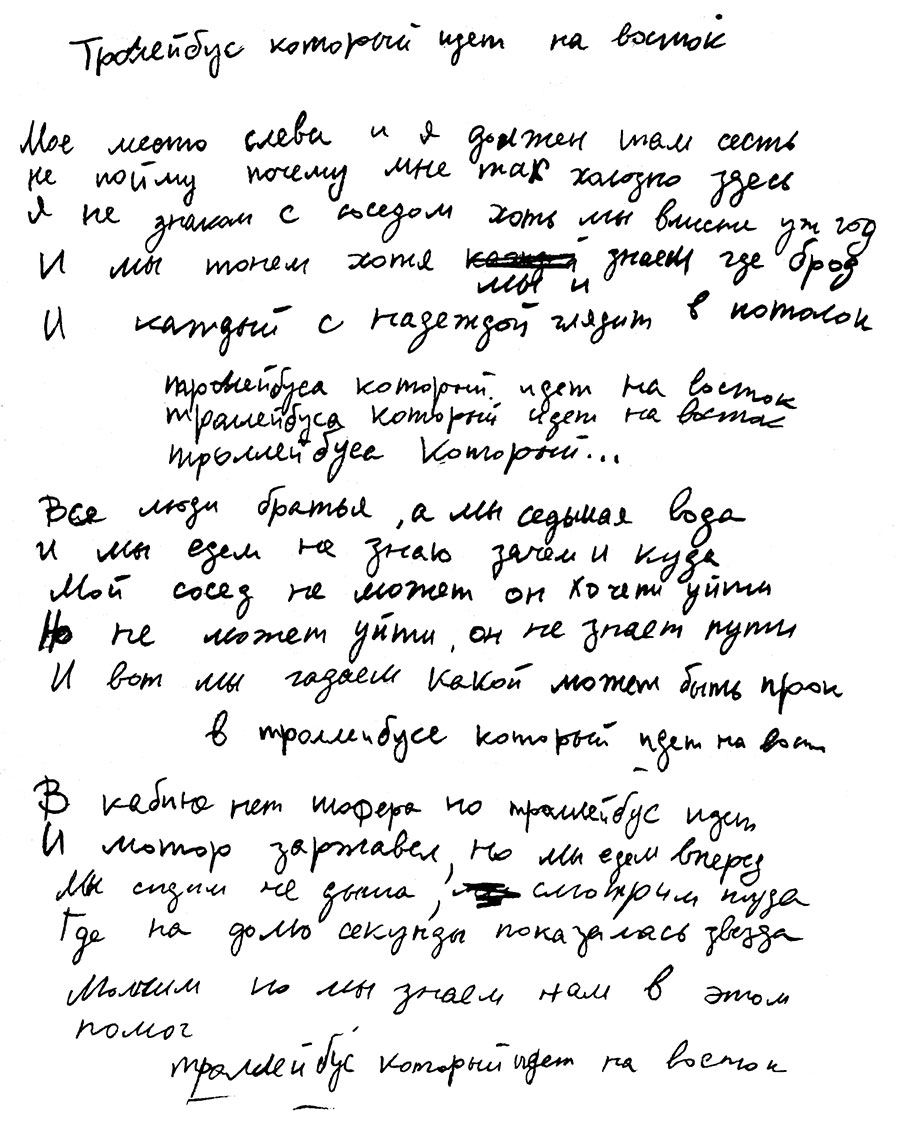 Тролейбус который идет на восток
Мое место слева и я должен там сесть
не пойму почему мне так холодно здесь
Я не знаком с соседом хоть мы вместе уж год
И мы тонем хотя знаем где брод
мы и
И каждый с надеждой глядит в потолок
тролейбуса который идет на восток
тролейбуса который идет на восток
троллейбуса Который...
Все люди братья, а мы седьмая вода
и мы едем не знаю зачем и куда
Мой сосед не может он хочет уйти
Но не может уйти, он не знает пути
И вот мы гадаем какой может быть прок
в троллейбусе который идет на вост
В кабине нет шофера но троллейбус идет
И мотор заржавел, но мы едем вперед
Мы сидим не дыша, смотрим туда
Где на долю секунды показалась звезда
Молчим но мы знаем нам в этом
помог
троллейбус который идет на восток